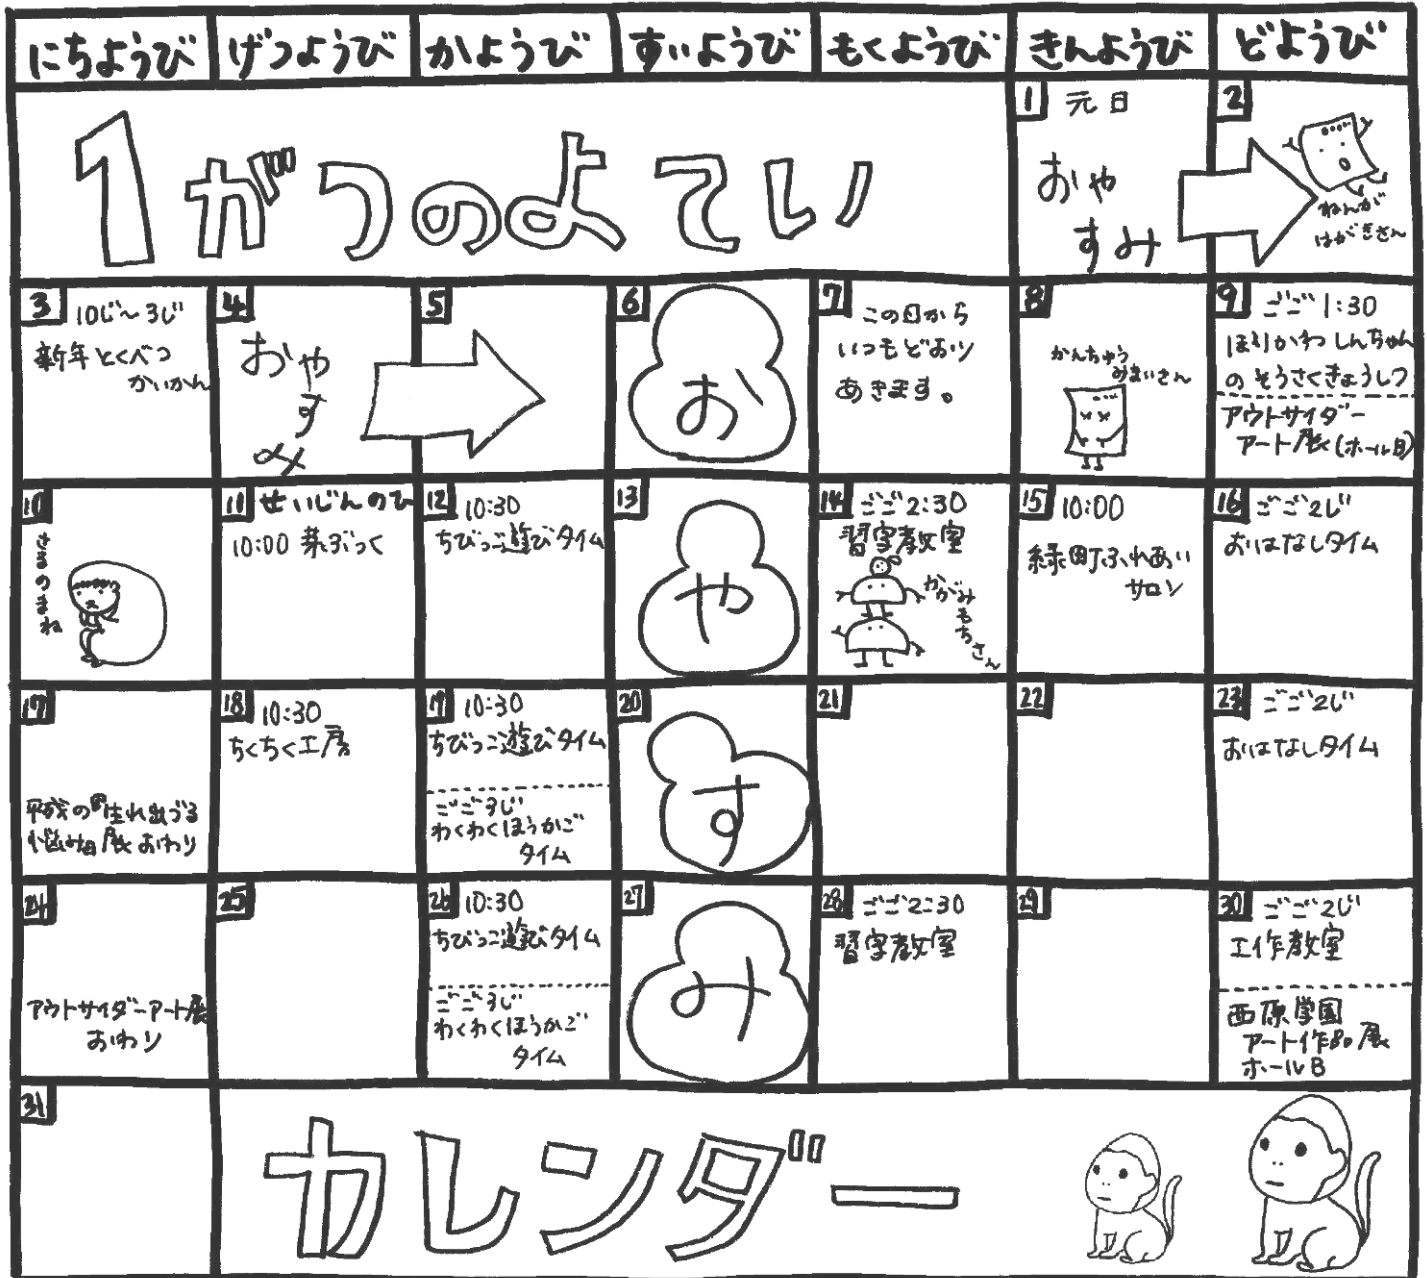 にちようび
げつようび
かようび
すいようび
もくようび
きんようび
どようび
1がつのよてい
1 元日
おや
すみ
2
ねんが
はがきさん
3 10じ～3じ
新年とくべつ
かいかん
4
おや
す
み
5
6
お
7
この日から
いつもどおり
あきます。
8
かんちゅう
みまいさん
9 ごご1:30
ほりかわしんちゃん
のそうさくきょうしつ
アウトサイダー
アート展(ホールB)
10
さるのまね
11 せいじんのひ
10:00 芽ぶっく
12 10:30
ちびっこ遊びタイム
13
や
14 ごご2:30
習字教室
かがみもちさん
15 10:00
緑町ふれあい
サロン
16 ごご2じ
おはなしタイム
17
平成の生れ出づる
悩み展おわり
18 10:30
ちくちく工房
19 10:30
ちびっこ遊びタイム
ごご3じ
わくわくほうかご
タイム
20
す
21
22
23 ごご2じ
おはなしタイム
24
アウトサイダーアート展
おわり
25
26 10:30
ちびっこ遊びタイム
ごご3じ
わくわくほうかご
タイム
27
み
28 ごご2:30
習字教室
29
30 ごご2じ
工作教室
西原学園
アート作品展
ホールB
31
カレンダー